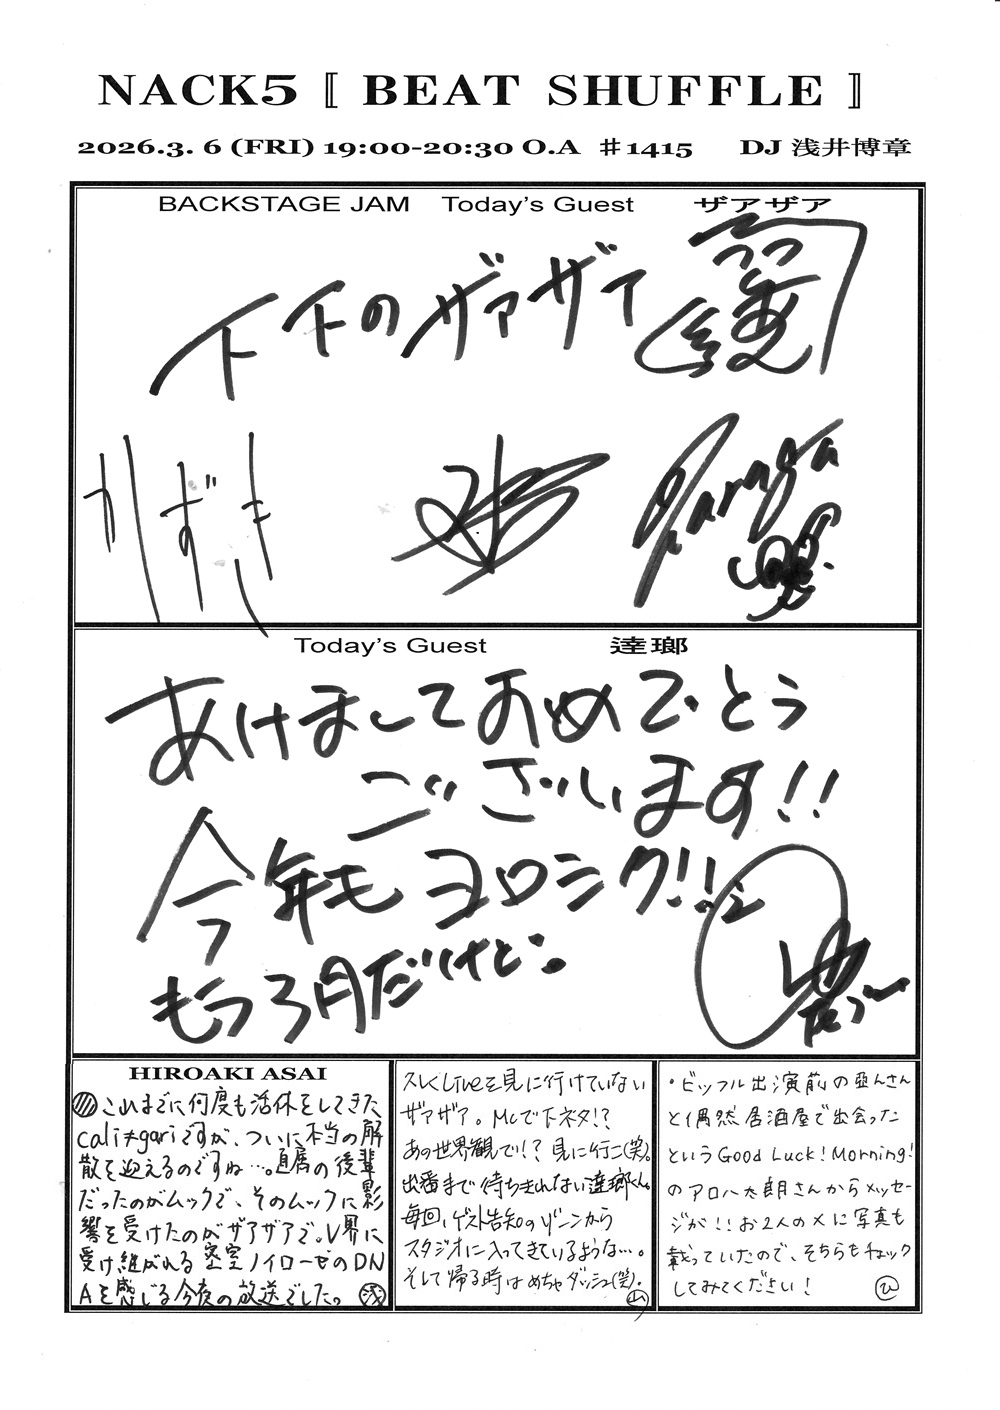 NACK5 〚 BEAT SHUFFLE 〛
2026.3. 6 (FRI) 19:00-20:30 O.A ♯1415 DJ 浅井博章
BACKSTAGE JAM Today's Guest ザアザア
下下のザアザア
かずき
Today's Guest 逹瑯
あけましておめでとう
ございます!!
今年もヨロシク!!
もう3月だけど。
HIROAKI ASAI
これまでに何度も活休をしてきた
cali≠gariですが、ついに本当の解
散を迎えるのですね…。直属の後輩
だったのがムックで、そのムックに影
響を受けたのがザアザアで。V界に
受け継がれる密室ノイローゼのDN
Aを感じる今夜の放送でした。 浅
久しくLiveを見に行けていない
ザアザア。MCで下ネタ!?
あの世界観で!? 見に行こ(笑)。
出番まで待ちきれない逹瑯くん。
毎回、ゲスト告知のゾーンから
スタジオに入ってきているような…。
そして帰る時はめちゃダッシュ(笑)。
山
・ビッフル出演前の亜んさん
と偶然居酒屋で出会った
というGood Luck! Morning!
のアロハ太朗さんからメッセー
ジが!! お2人のXに写真も
載っていたので、そちらもチェック
してみてください! ひ